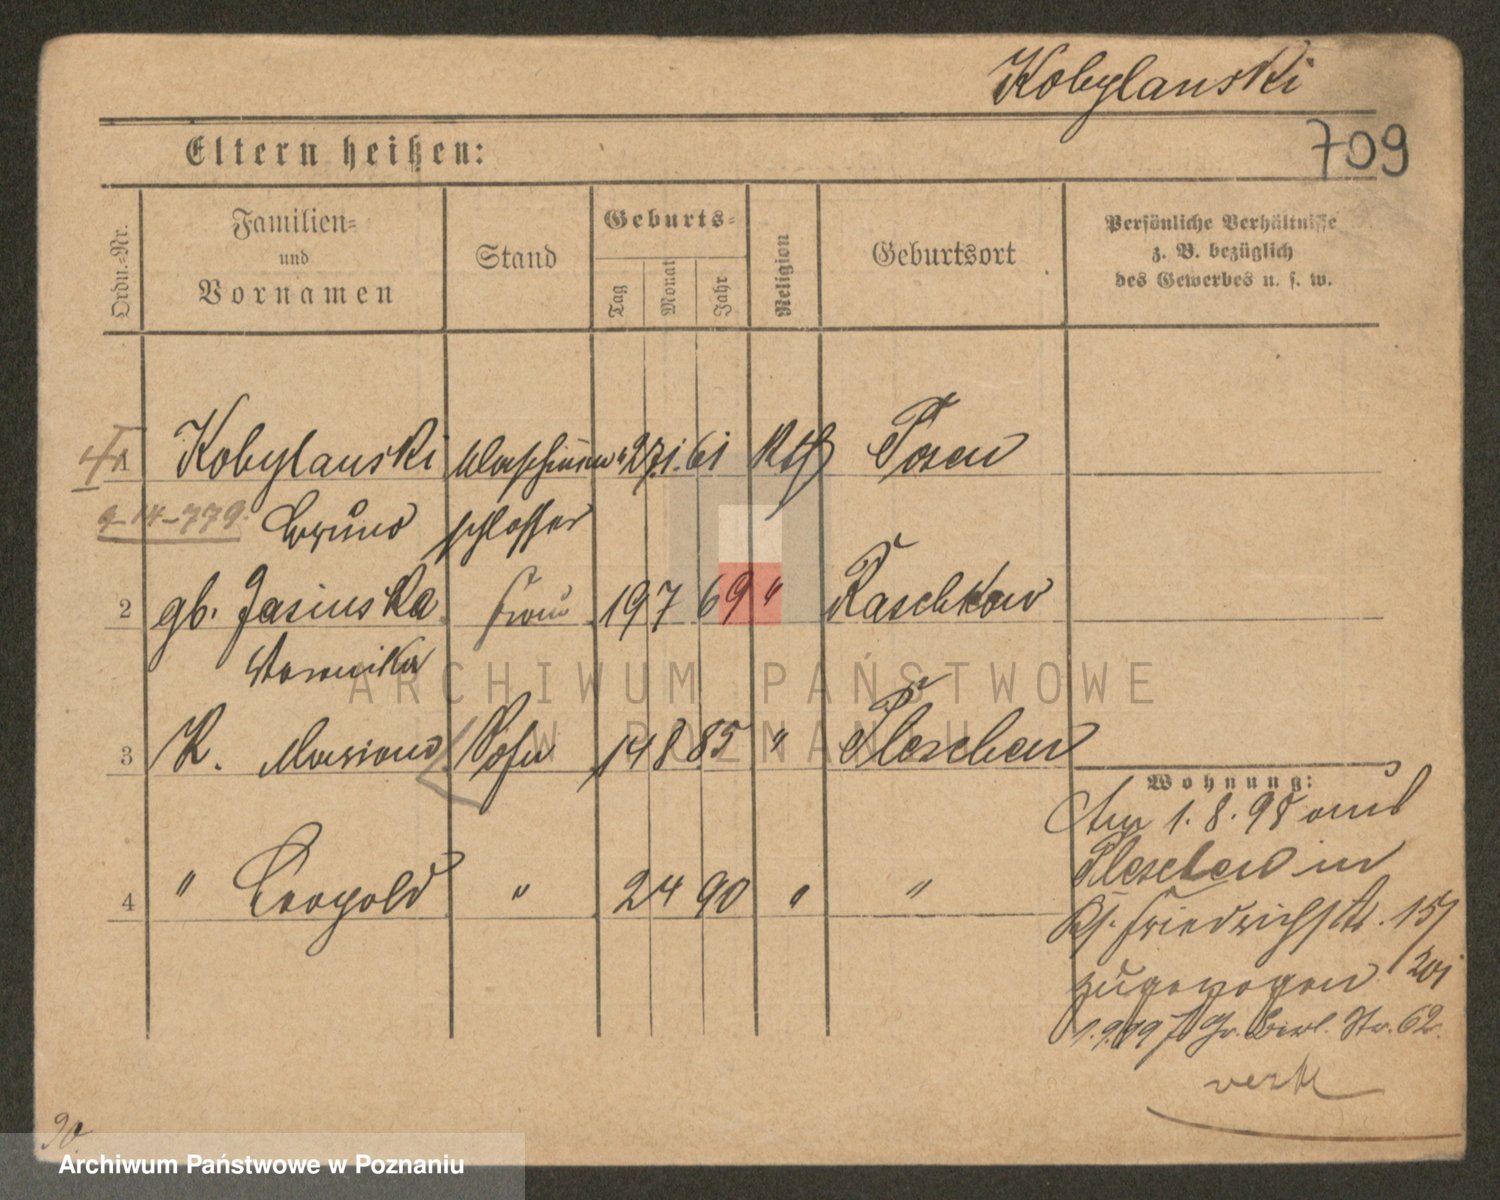 Kobylanski
709
Eltern heißen:
Ordn.-Nr.
Familien-
und
Vornamen
Stand
Geburts-
Tag
Monat
Jahr
Religion
Geburtsort
Persönliche Verhältnisse
z. B. bezüglich
des Gewerbes u. s. w.
1 Kobylanski Maschinen- 27 1. 61 Kth Posen
9-14-779. Bruno schlosser
2 gb. Jasinska Frau 19 7 69 " Raschkow
Veronika
3 K. Marian Sohn 14 8 85 " Pleschen
Wohnung:
Am 1. 8. 98 aus
Pleschen in
4 " Leopold " 24 90 " "
Friedrichstr. 15/
zugezogen 201
1.9.99 Gr. Berl. Str. 62.
90.
ARCHIWUM PAŃSTWOWE
W POZNANIU
Archiwum Państwowe w Poznaniu